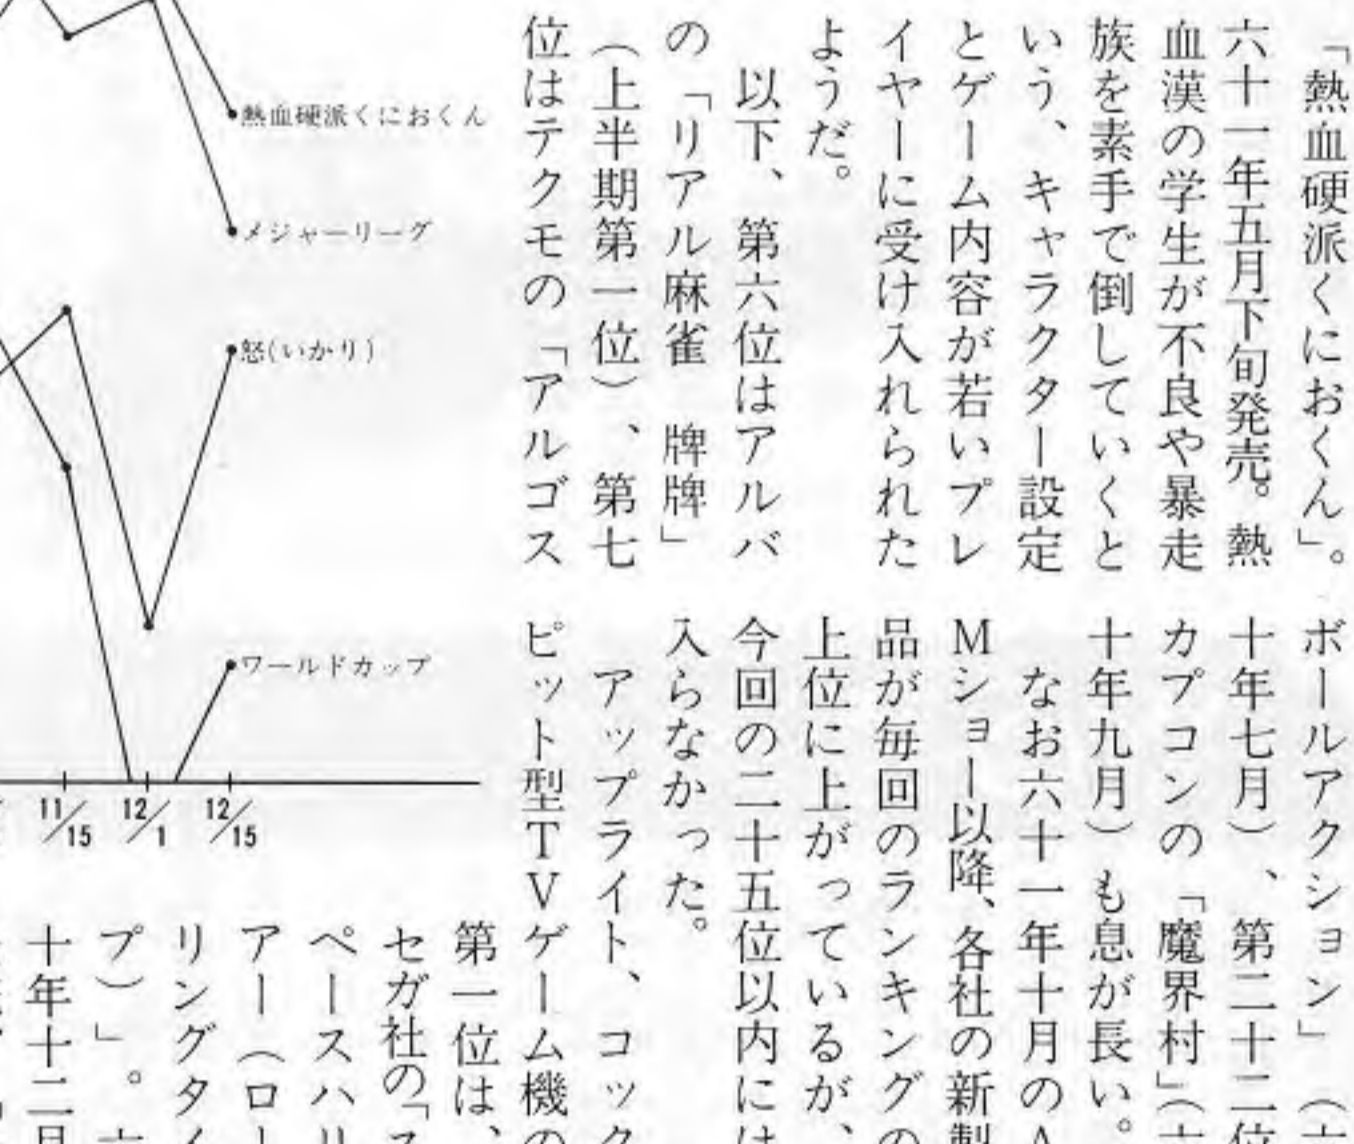 「熱血硬派くにおくん」。
六十一年五月下旬発売。熱
血漢の学生が不良や暴走
族を素手で倒していくと
いう、キャラクター設定
とゲーム内容が若いプレ
イヤーに受け入れられた
ようだ。
以下、第六位はアルバ
の「リアル麻雀　牌牌」
（上半期第一位）、第七
位はテクモの「アルゴス
ボールアクション」（
十年七月）、第二十二位
カプコンの「魔界村」（
十年九月）も息が長い。
なお六十一年十月のA
Mショー以降、各社の新製
品が毎回のランキングの
上位に上がっているが、
今回の二十五位以内には
入らなかった。
アップライト、コック
ピット型TVゲーム機の
第一位は、
セガ社の「ス
ペースハリ
アー（ロー
リングタイ
プ）」。
十年十二月
熱血硬派くにおくん
メジャーリーグ
怒(いかり)
ワールドカップ
11/15
12/1
12/15